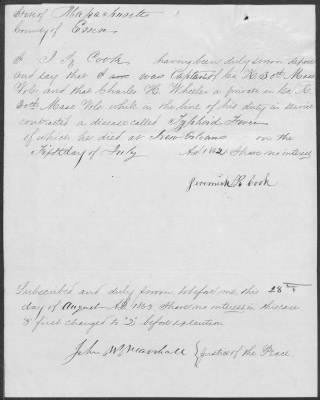 State of Massachusetts
County of Essex
I J R Cook having been duly sworn depose
and say that I was Captain of Co. K. 30th Mass
Vols and that Charles H. Wheeler a private in Co. K.
30th Mass Vols while in the line of his duty in service
contracted a disease called Typhoid Fever
of which he died at New Orleans on the
Fifth day of July A.D. 1862 I have no interest
Jeremiah R. Cook
Subscribed and duly sworn to before me this 28th
day of August A.D. 1863 I have no interest in this case
& first changed to "2" before execution
John W. Marshall Justice of the Peace